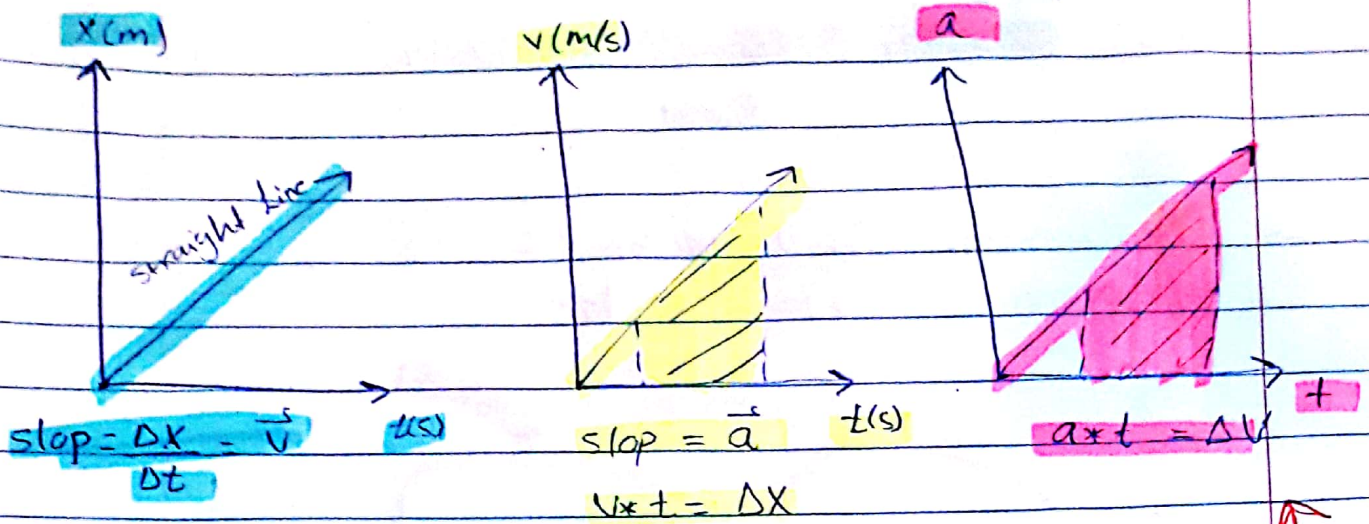 x(m)
straight Line
t(s)
slop = Δx / Δt = v⃗
v(m/s)
t(s)
slop = a⃗
v*t = Δx
a
t
a*t = Δv